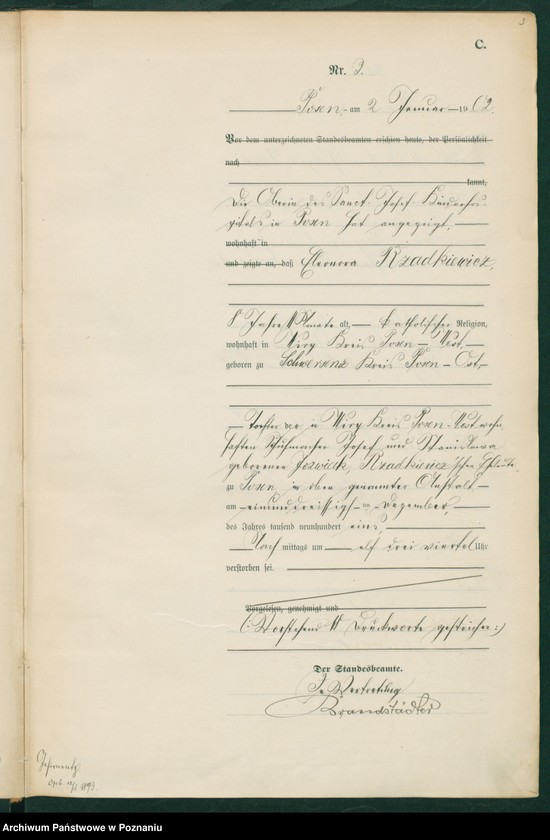 3
C.
Nr. 3.
Posen, am 2. Januar 1902.
Vor dem unterzeichneten Standesbeamten erschien heute, der Persönlichkeit
nach
kannt,
Die Oberin des Sanct. Josef Kinderhos-
pitals in Posen hat angezeigt,
wohnhaft in
und zeigte an, daß Eleonora Rzadkiewicz,
8 Jahre Monate alt, katholischer Religion,
wohnhaft in Wiry Kreis Posen-West,
geboren zu Schwersenz Kreis Posen-Ost,
Tochter der in Wiry Kreis Posen-West wohn-
haften Schuhmacher Josef und Stanislawa
geborenen Jozwiak, Rzadkiewicz'schen Eheleute
zu Posen, in oben genannter Anstalt
am einunddreissigsten Dezember,
des Jahres tausend neunhundert eins,
Nach mittags um elf drei viertel Uhr
verstorben sei.
Vorgelesen, genehmigt und
(: Vorstehend Druckworte gestrichen :)
Der Standesbeamte.
In Vertretung
Brandstädter
Archiwum Państwowe w Poznaniu